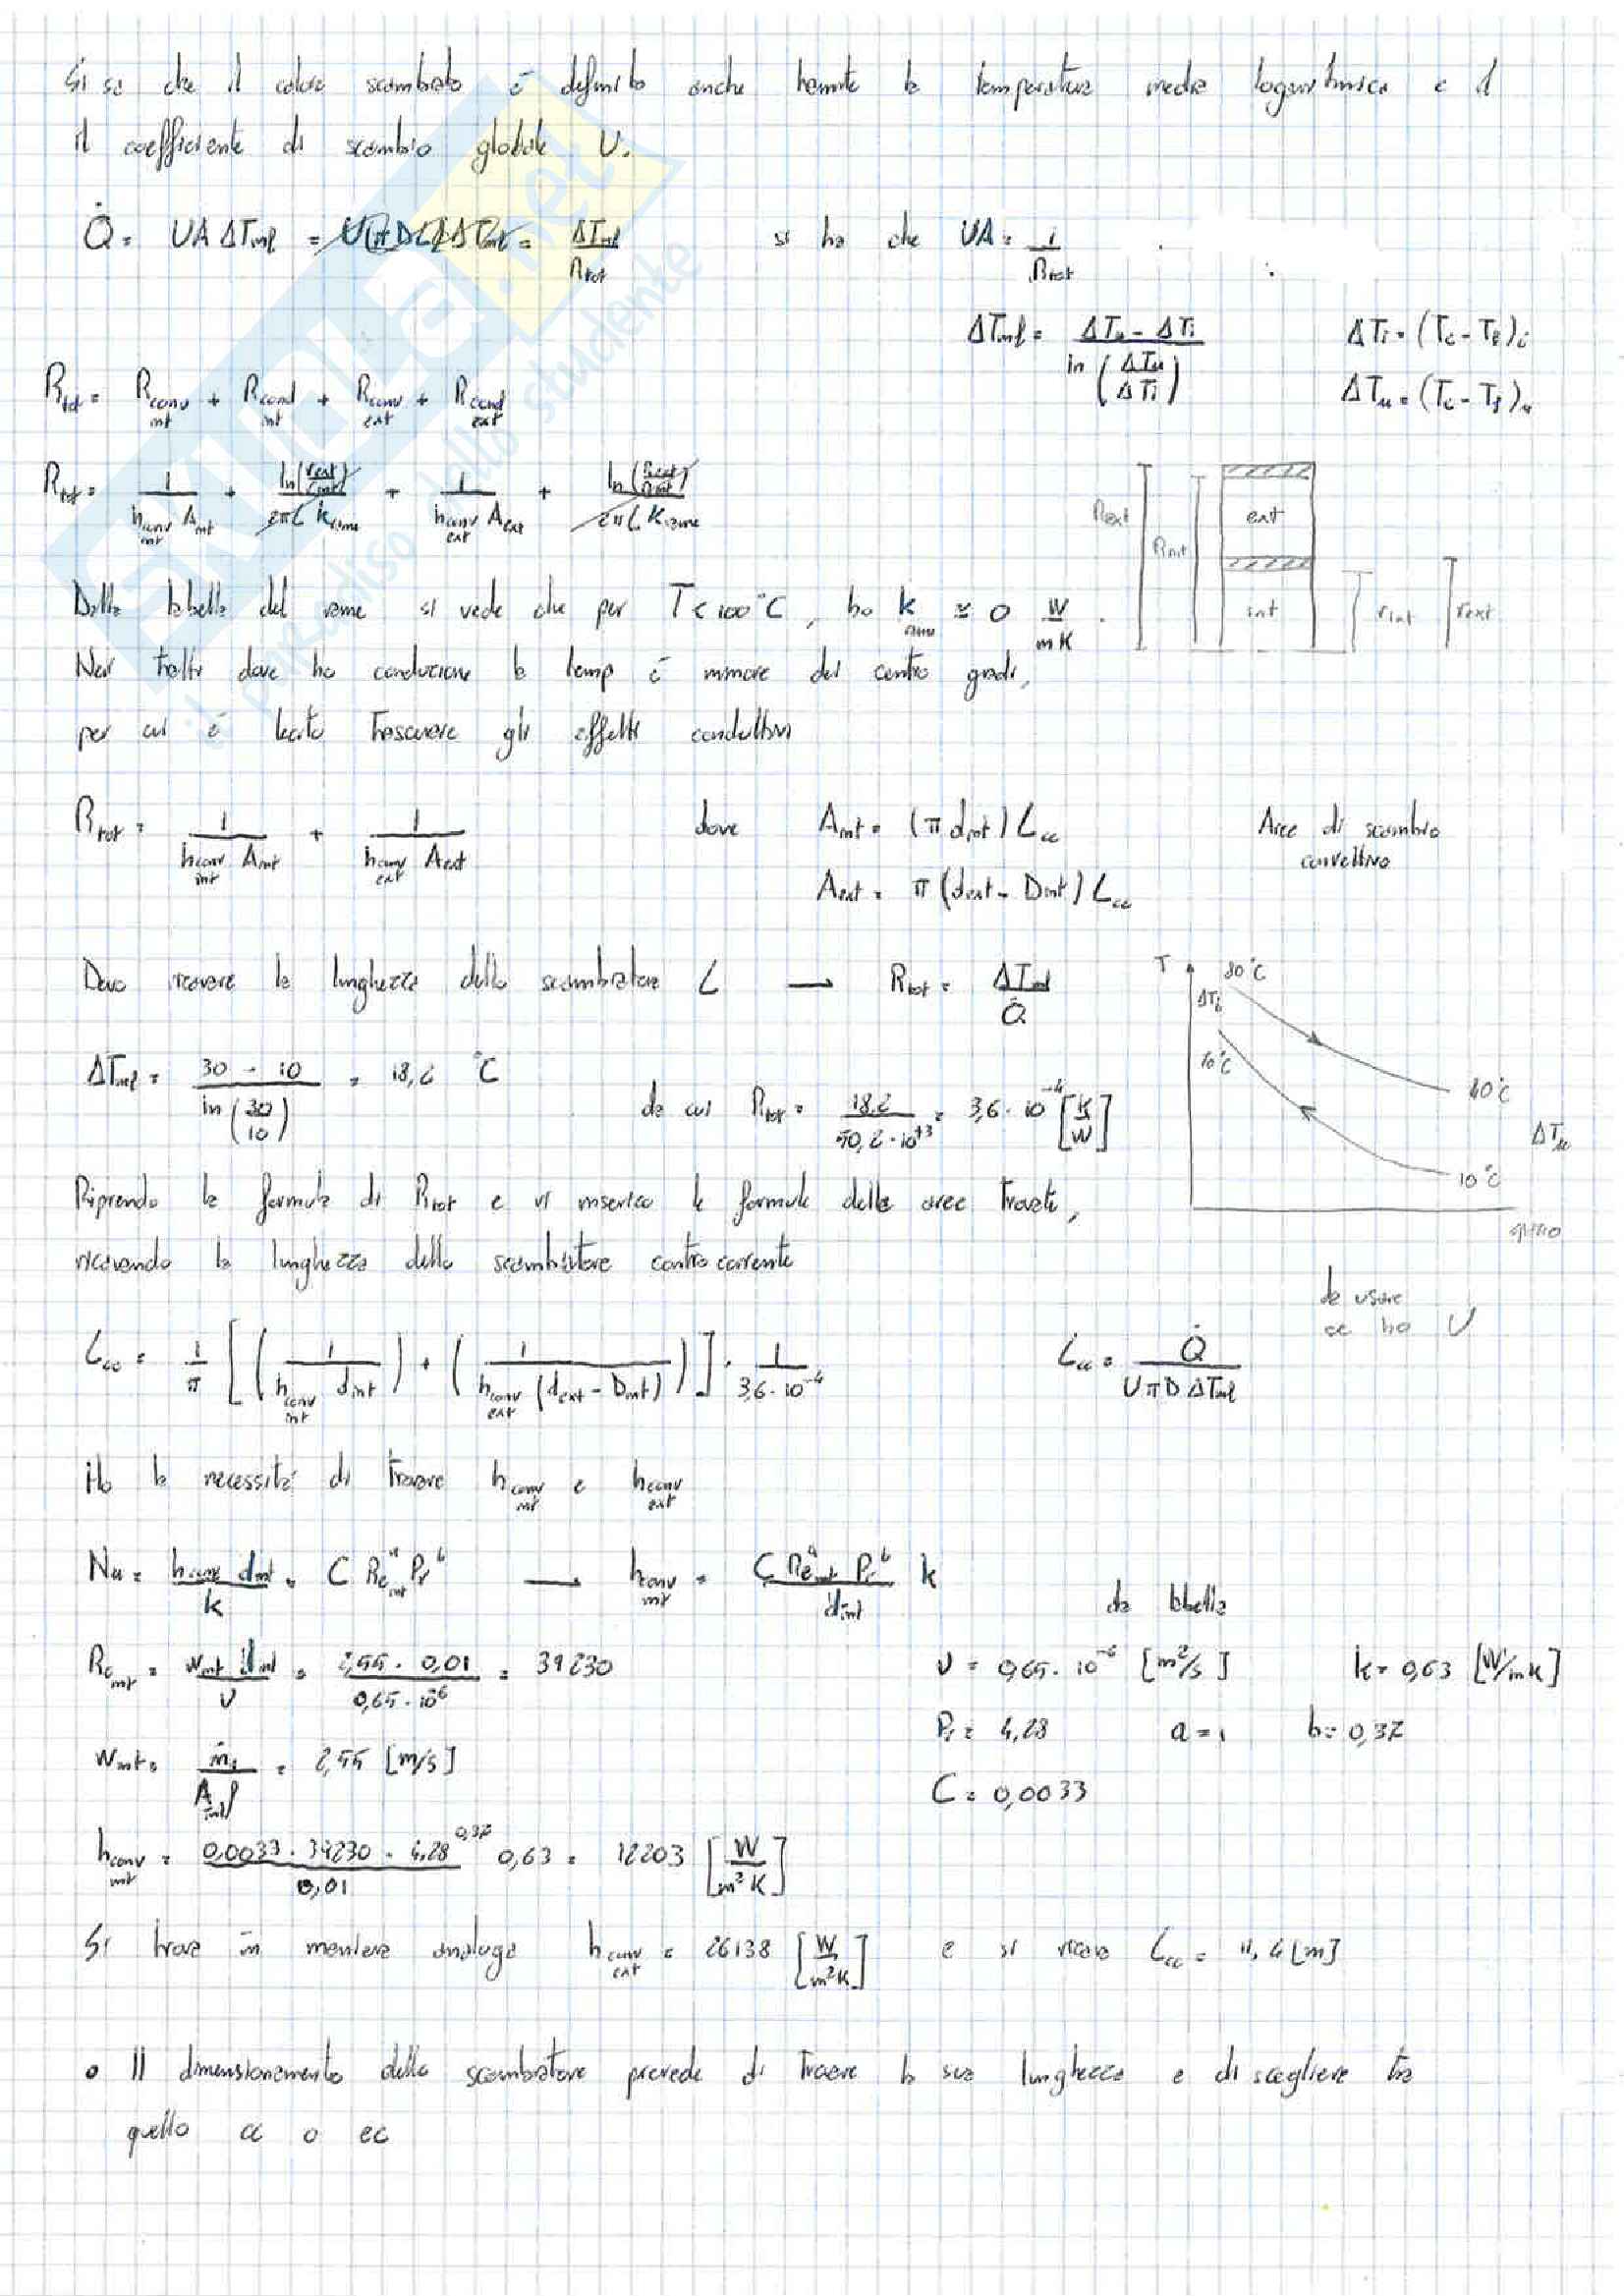 Si sa che il calore scambiato è definito anche tramite la temperatura media logaritmica e il
il coefficiente di scambio globale U.
Q̇ = UA ΔTml = = ΔTml / Rtot si ha che UA = 1 / Rtot
ΔTml = ΔTu - ΔTi / ln (ΔTu / ΔTi) ΔTi = (Tc - Tf)i
ΔTu = (Tc - Tf)u
Rtot = Rconv int + Rcond int + Rconv ext + Rcond ext
Rtot = 1 / hconv int Aint + ln(rext/rint) / 2πL krame + 1 / hconv ext Aext + ln(Rext/Rint) / 2πL Krame
Rext Rint ext int rint rext
Dalla tabella del rame si vede che per T < 100°C, ho krame ≅ 0 W / mK.
Nei tratti dove ho conduzione la temp è minore dei cento gradi,
per cui è lecito trascurare gli effetti conduttivi
Rtot = 1 / hconv int Aint + 1 / hconv ext Aext dove Aint = (π dint) Lcc Aree di scambio
convettivo
Aext = π (dext - Dint) Lcc
Devo trovare la lunghezza dello scambiatore L → Rtot = ΔTml / Q̇
T ΔTi 80°C 70°C 40°C ΔTu 10°C
ΔTml = 30 - 10 / ln (30 / 10) = 18,2 °C da cui Rtot = 18,2 / 50,2 · 10+3 = 3,6 · 10-4 [K / W]
Riprendo la formula di Rtot e vi inserisco le formule delle aree trovate,
ricavando la lunghezza dello scambiatore contro corrente
da usare
se ho U
Lcc = 1 / π [(1 / hconv int dint) + (1 / hconv ext (dext - Dint))] · 1 / 3,6 · 10-4 Lcc = Q̇ / UπD ΔTml
Ho la necessità di trovare hconv int e hconv ext
Nu = hconv dint / k = C Reint a Pr b → hconv int = C Reint a Pr b / dint k
da tabella
Reint = wint dint / ν = 2,55 · 0,01 / 0,65 · 10-6 = 39230 ν = 0,65 · 10-6 [m2/s] k = 0,63 [W/mK]
Pr = 4,28 a = 1 b = 0,37
wint = ṁ1 / Aint ρ = 2,55 [m/s]
C = 0,0033
hconv int = 0,0033 · 39230 · 4,28 0,37 / 0,01 0,63 = 12203 [W / m2 K]
Si trova in maniera analoga hconv ext = 26138 [W / m2K] e si ricava Lcc = 11,4 [m]
o Il dimensionamento dello scambiatore prevede di trovare la sua lunghezza e di scegliere tra
quello cc o ec